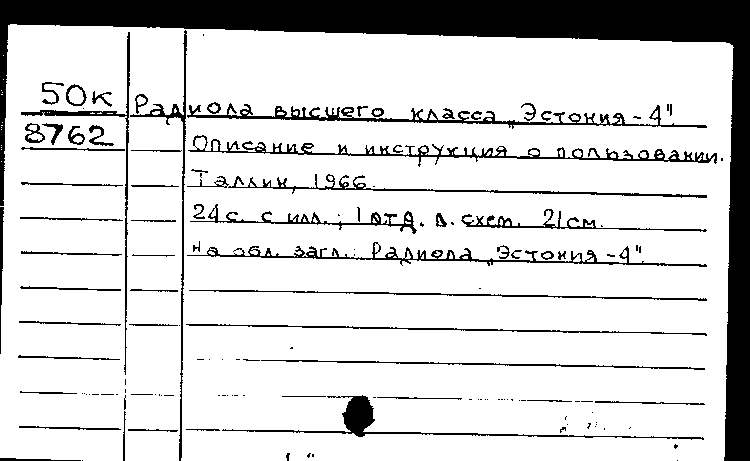 50к
8762
Радиола высшего класса „Эстония-4".
Описание и инструкция о пользовании.
Таллин, 1966.
24 с. с илл.; 1 отд. л. схем. 21 см.
На обл. загл.: Радиола „Эстония-4".